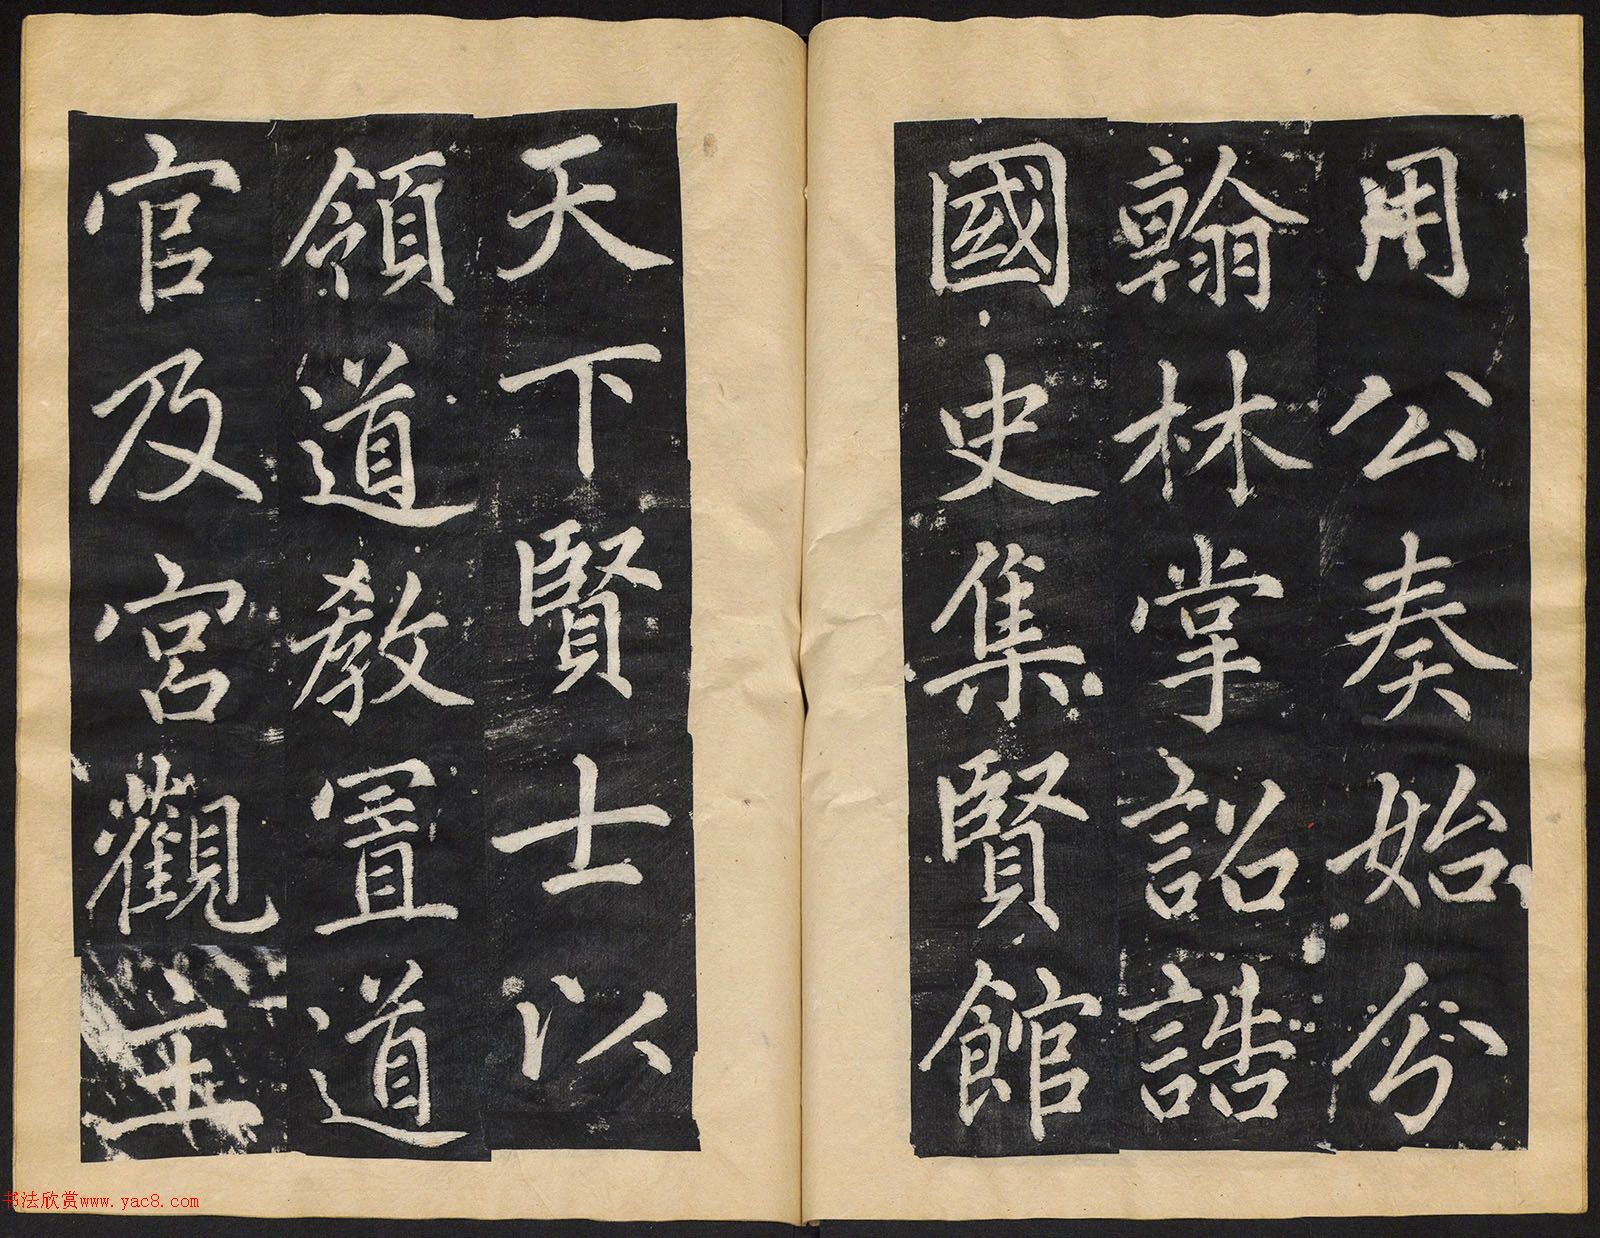 用公奏始分
翰林掌詔誥
國史集賢館
天下賢士以
領道教置道
官及宮觀主
书法欣赏www.yac8.com